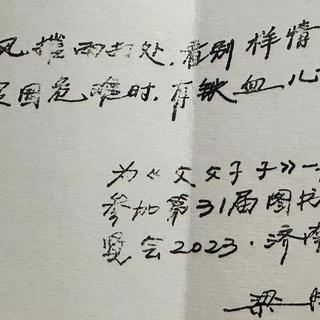 风挡雨打处,看别样情
国危难时,有铁血儿
为《父父子子》一
参加第31届图书
览会2023·济南
梁